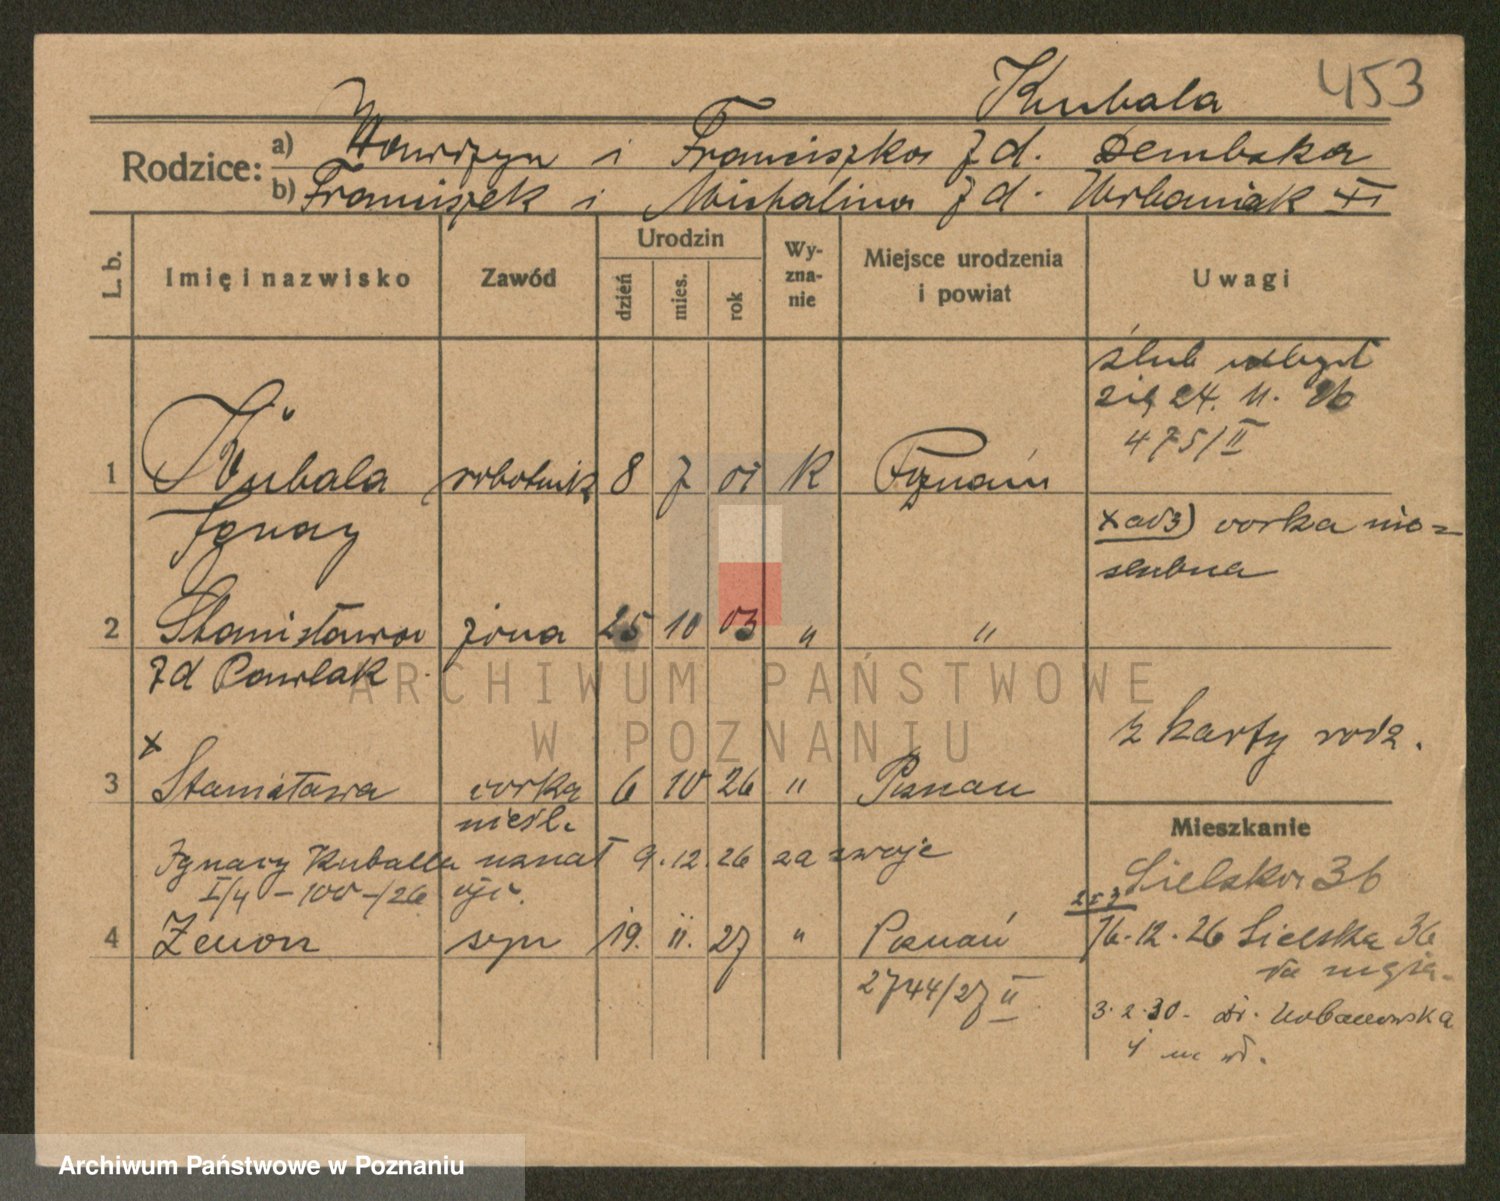 Kubala 453
Rodzice: a) Wawrzyn i Franciszka z d. Dembska
b) Franciszek i Michalina z d. Urbaniak XI
L. b. Imię i nazwisko Zawód Urodzin dzień mies. rok Wyznanie Miejsce urodzenia i powiat Uwagi
ślub odbył
się 24. 11. 26
475/II
1 Kubala robotnik 8 7 01 K Poznań
Ignacy
x ad 3) córka nie=
ślubna
2 Stanisława żona 25 10 03 „ „
z d Pawlak
z karty rodz.
x
3 Stanisława córka 6 10 26 „ Poznań
nieśl.
Mieszkanie
Ignacy Kubala uznał 9.12.26 za swoje
Sielska 36
I/4 – 100 –/26 ojc.
2 + 3
4 Zenon syn 19. 11. 27 „ Poznań
16.12.26 Sielska 36
2744/27 II
3.2.30 -
ARCHIWUM PAŃSTWOWE
W POZNANIU
Archiwum Państwowe w Poznaniu